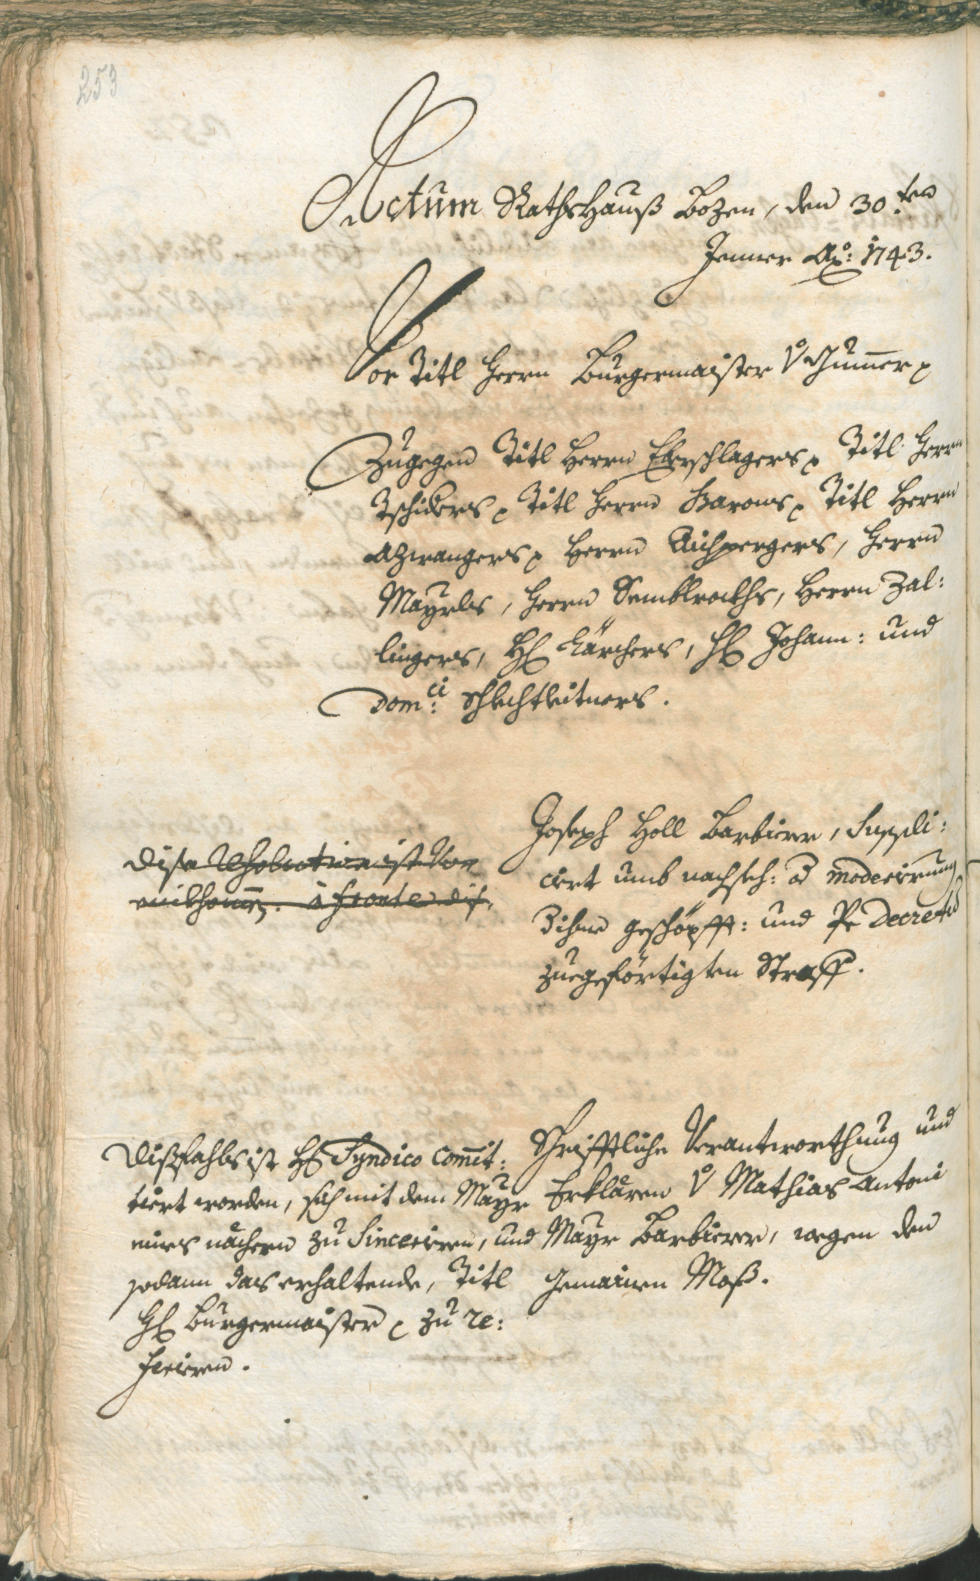 253
Actum Rathshauß Bozen, den 30.ten
Jenner Ao: 1743.
Vor Titl Herrn Burgermaister V. Gumer p
Zugegen Titl Herrn Eberschlagers p Titl Herrn
Tschiders p Titl Herrn Barons p Titl Herrn
Azwangers p Herrn Aichpergers, Herrn
Mayrls, Herrn Semblrokhs, Herrn Zal:
lingers, H Lärchers, H Johann: und
Domci: Schlechtleitners.
Dise Resolution ist
à fronte
Joseph Holl Barbierer, Suppli:
cirt umb nachseh: od moderirung
Jhme geschöpfft: und Pr Decretu
zuegeförtigten Straff.
Dißfahls ist H Syndico comit:
tiert worden, sich mit dem Mayr
eines nächern zu Sinceriren, und
sodann das erhaltende, Titl
H Burgermaister p zu re:
feriren.
Schrifftliche Verantworthung und
Erklären V Mathias Antoni
Mayr Barbierer, wegen den
Gemainen Moß.